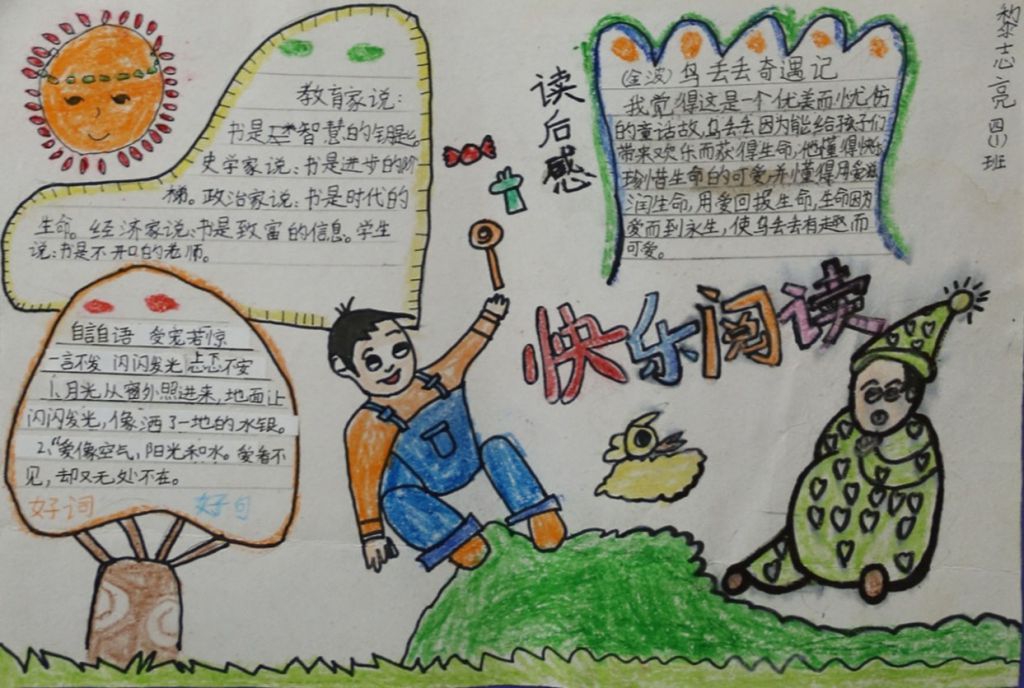 教育家说：
书是智慧的钥匙。
史学家说：书是进步的阶
梯。政治家说：书是时代的
生命。经济家说：书是致富的信息。学生
说：书是不开口的老师。
读后感
(金波)乌丢丢奇遇记
我觉得这是一个优美而忧伤
的童话故，乌丢丢因为能给孩子们
带来欢乐而获得生命，他懂得快乐
珍惜生命的可爱，并懂得用爱滋
润生命，用爱回报生命，生命因为
爱而到永生，使乌丢丢有趣而
可爱。
黎志亮 四(1)班
快乐阅读
自言自语 受宠若惊
一言不发 闪闪发光 忐忑不安
1、月光从窗外照进来，地面让
闪闪发光，像洒了一地的水银。
2、“爱像空气，阳光和水。爱看不
见，却又无处不在。
好词 好句